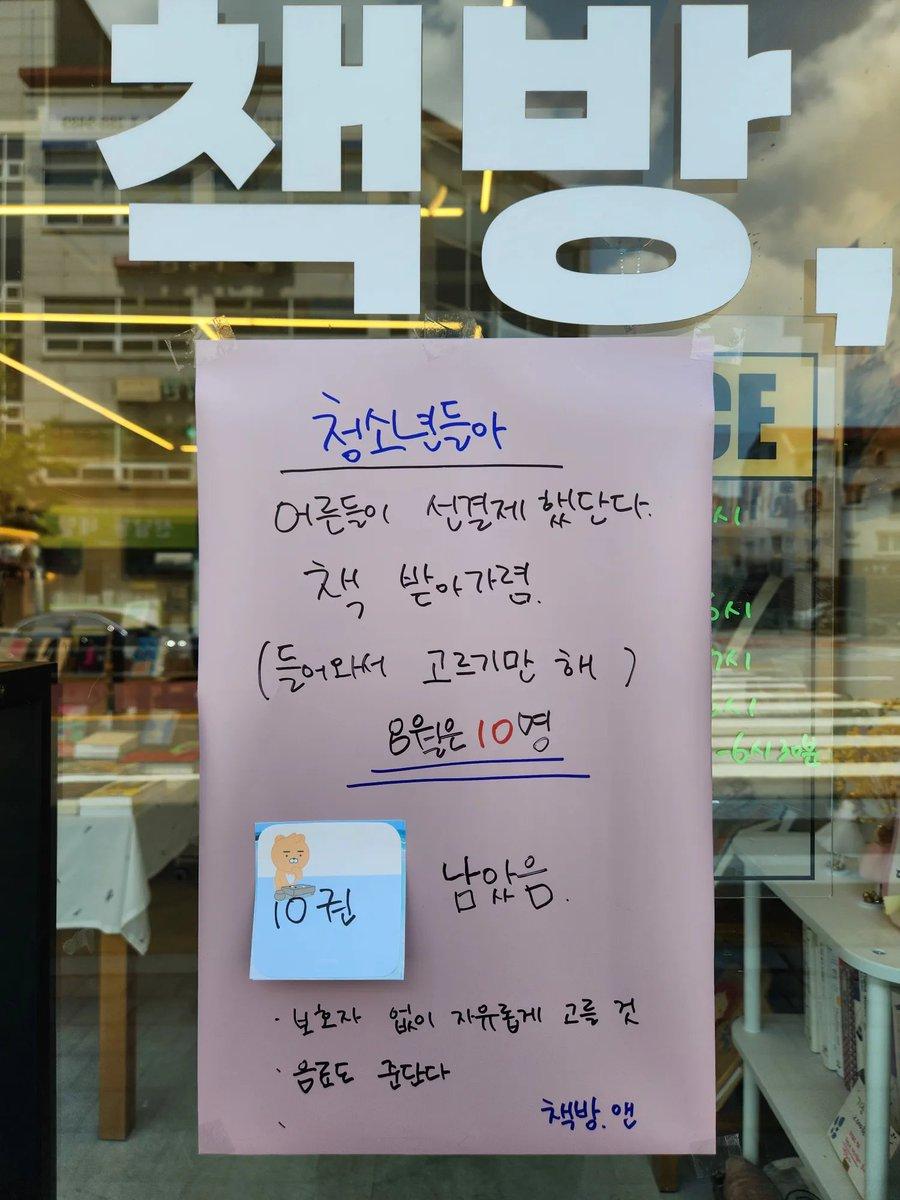 책방,
청소년들아
어른들이 선결제 했단다.
책 받아가렴.
(들어와서 고르기만 해)
8월은 10명
10권 남았음.
· 보호자 없이 자유롭게 고를 것
· 음료도 준단다
책방.앤
CE
시
6시
7시
시
-6시